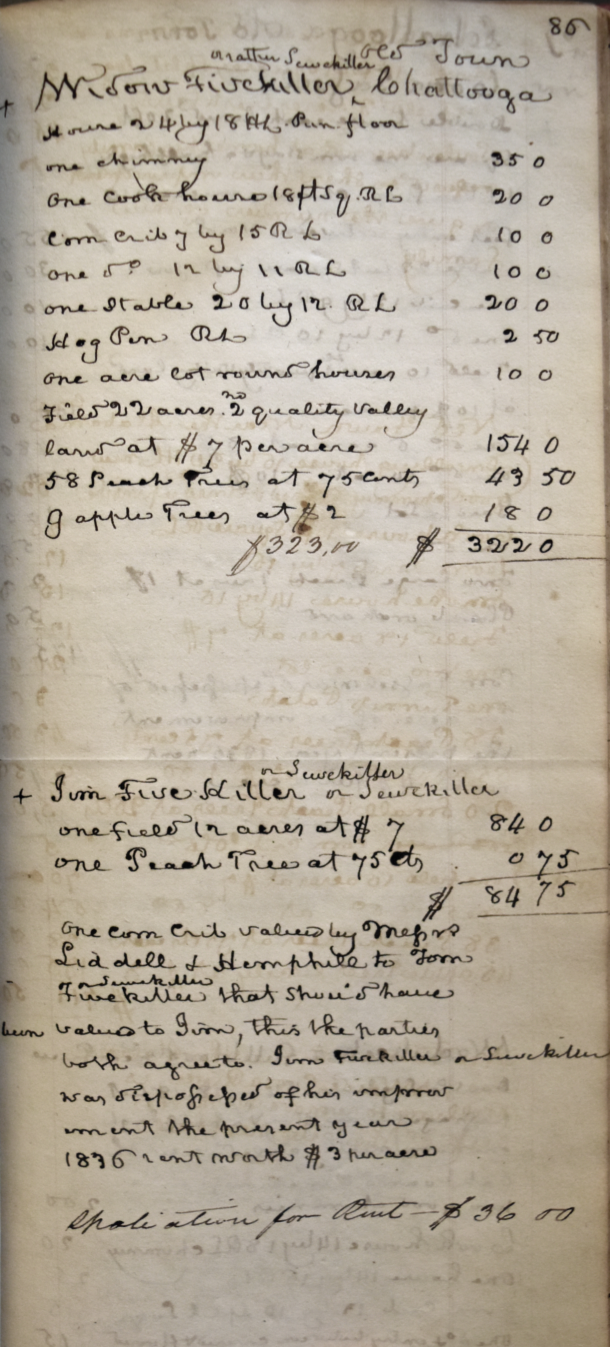 86
or rather Sewekiller Old Town
+ Widow Fivekiller, Chattooga
House 24 by 18 HL Pun floor
one chimney 35 0
One cook house 18 ft Sq. RL 20 0
Corn Crib 7 by 15 RL 10 0
one do. 12 by 11 RL 10 0
one Stable 20 by 12. RL 20 0
Hog Pen RL 2 50
One acre lot round houses 10 0
Field 22 acres. 2nd quality valley
land at $7 per acre 154 0
58 Peach Trees at 75 cents 43 50
9 apple Trees at $2 18 0
$323,00 $ 322 0
or Sewekiller
+ Jim Five Killer or Sewekiller
one field 12 acres at $ 7 84 0
one Peach Tree at 75 cts 0 75
$ 84 75
One corn Crib valued by Messrs
Liddell & Hemphill to Tom
or Sewekiller
Fivekiller that shou'd have
been valued to Jim, this the parties
both agree to. Jim Fivekiller or Sewekiller
was dispossessed of his improv
ement the present year
1836 rent worth $3 per acre
Spoliation for Rent — $36 00